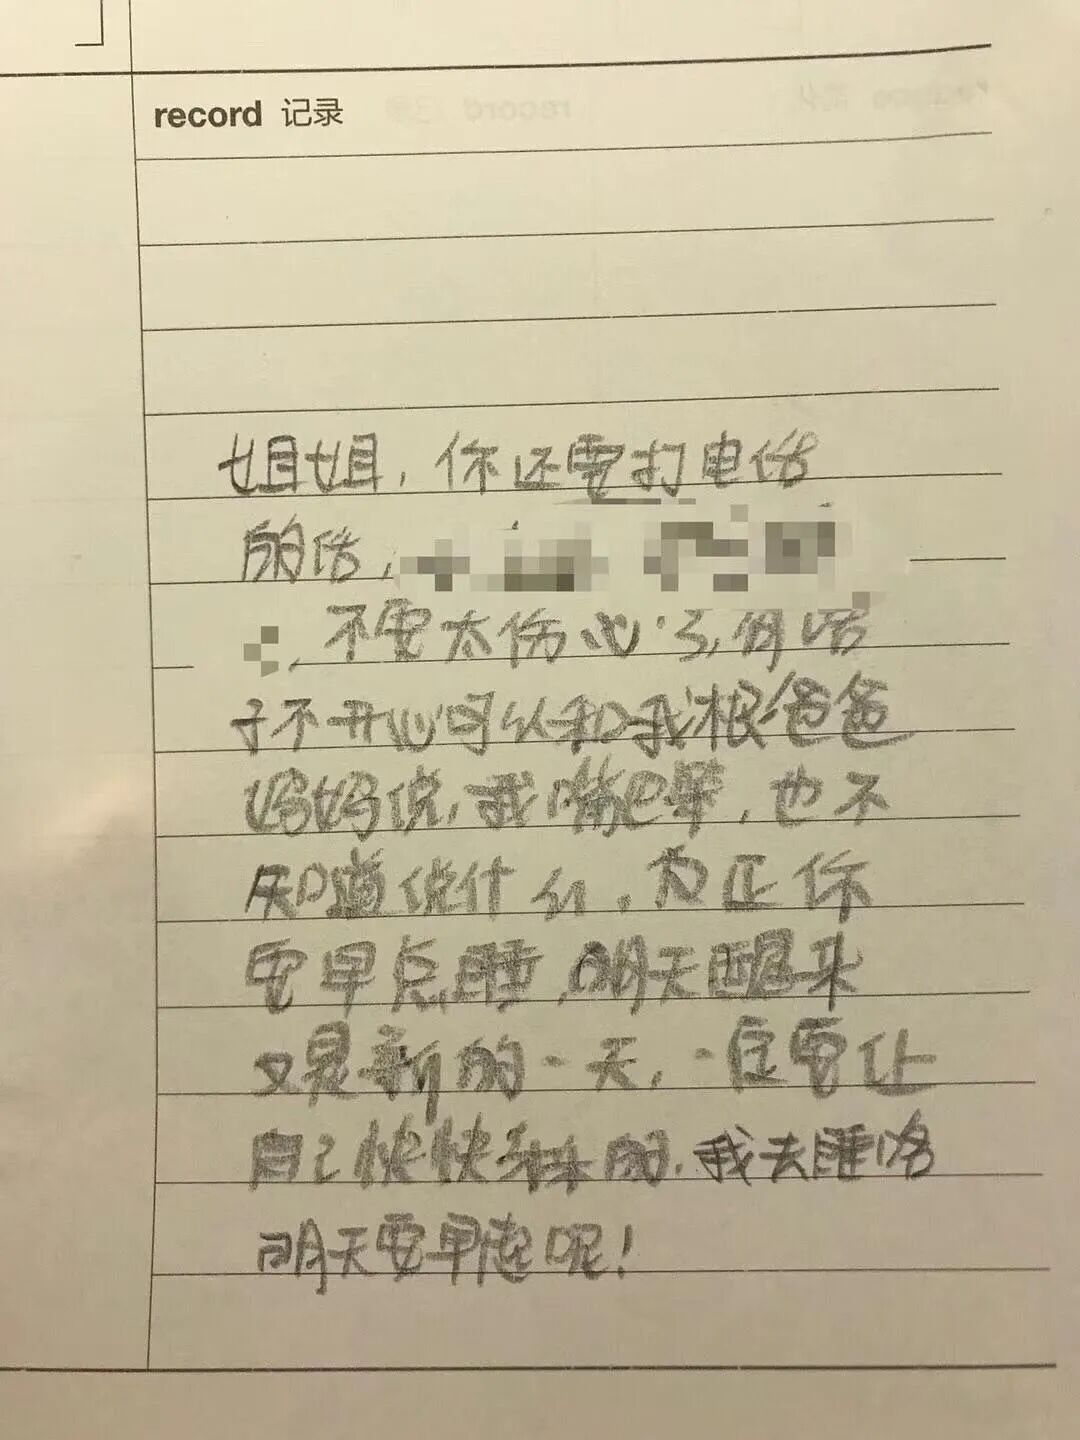 record 记录
姐姐，你还要打电话
的话，
，不要太伤心了，有啥
子不开心可以和我根爸爸
妈妈说，我嘴巴笨，也不
知道说什么，为正你
要早点睡，明天醒来
又是新的一天，一定要让
自己快快乐乐的，我去睡咯
明天要早起呢！